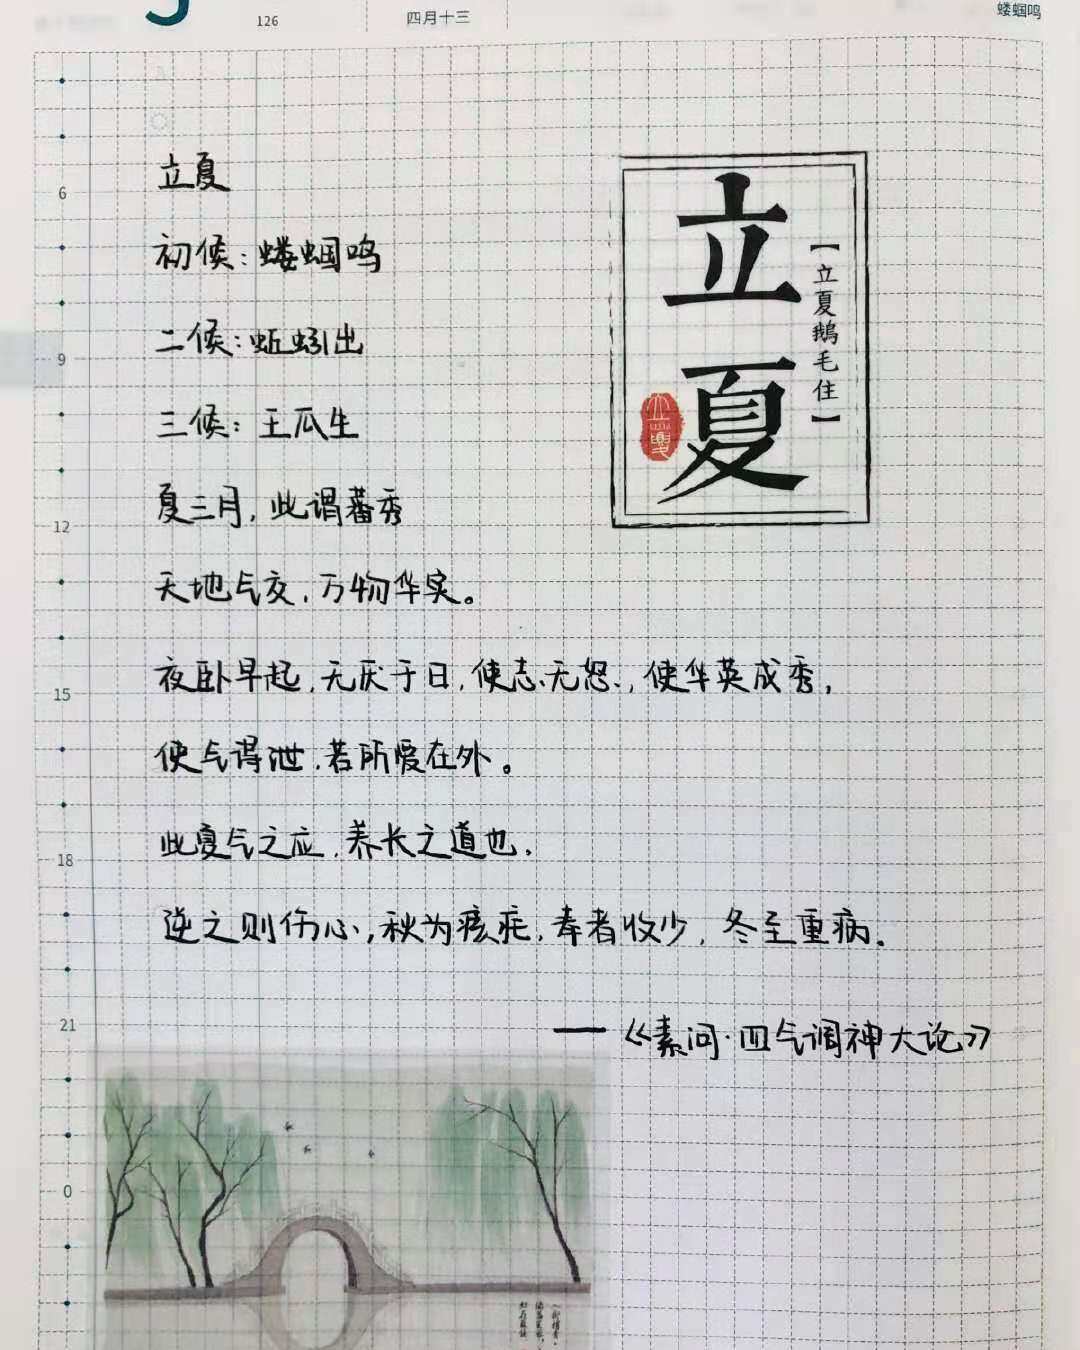 126
四月十三
蝼蝈鸣
立夏
初候：蝼蝈鸣
二候：蚯蚓出
三候：王瓜生
夏三月，此谓蕃秀
天地气交，万物华实。
夜卧早起，无厌于日，使志无怒，使华英成秀，
使气得泄，若所爱在外。
此夏气之应，养长之道也，
逆之则伤心，秋为痎疟，奉者收少，冬至重病。
——《素问·四气调神大论》
立夏
【立夏鹅毛住】
立夏
6
9
12
15
18
21
0